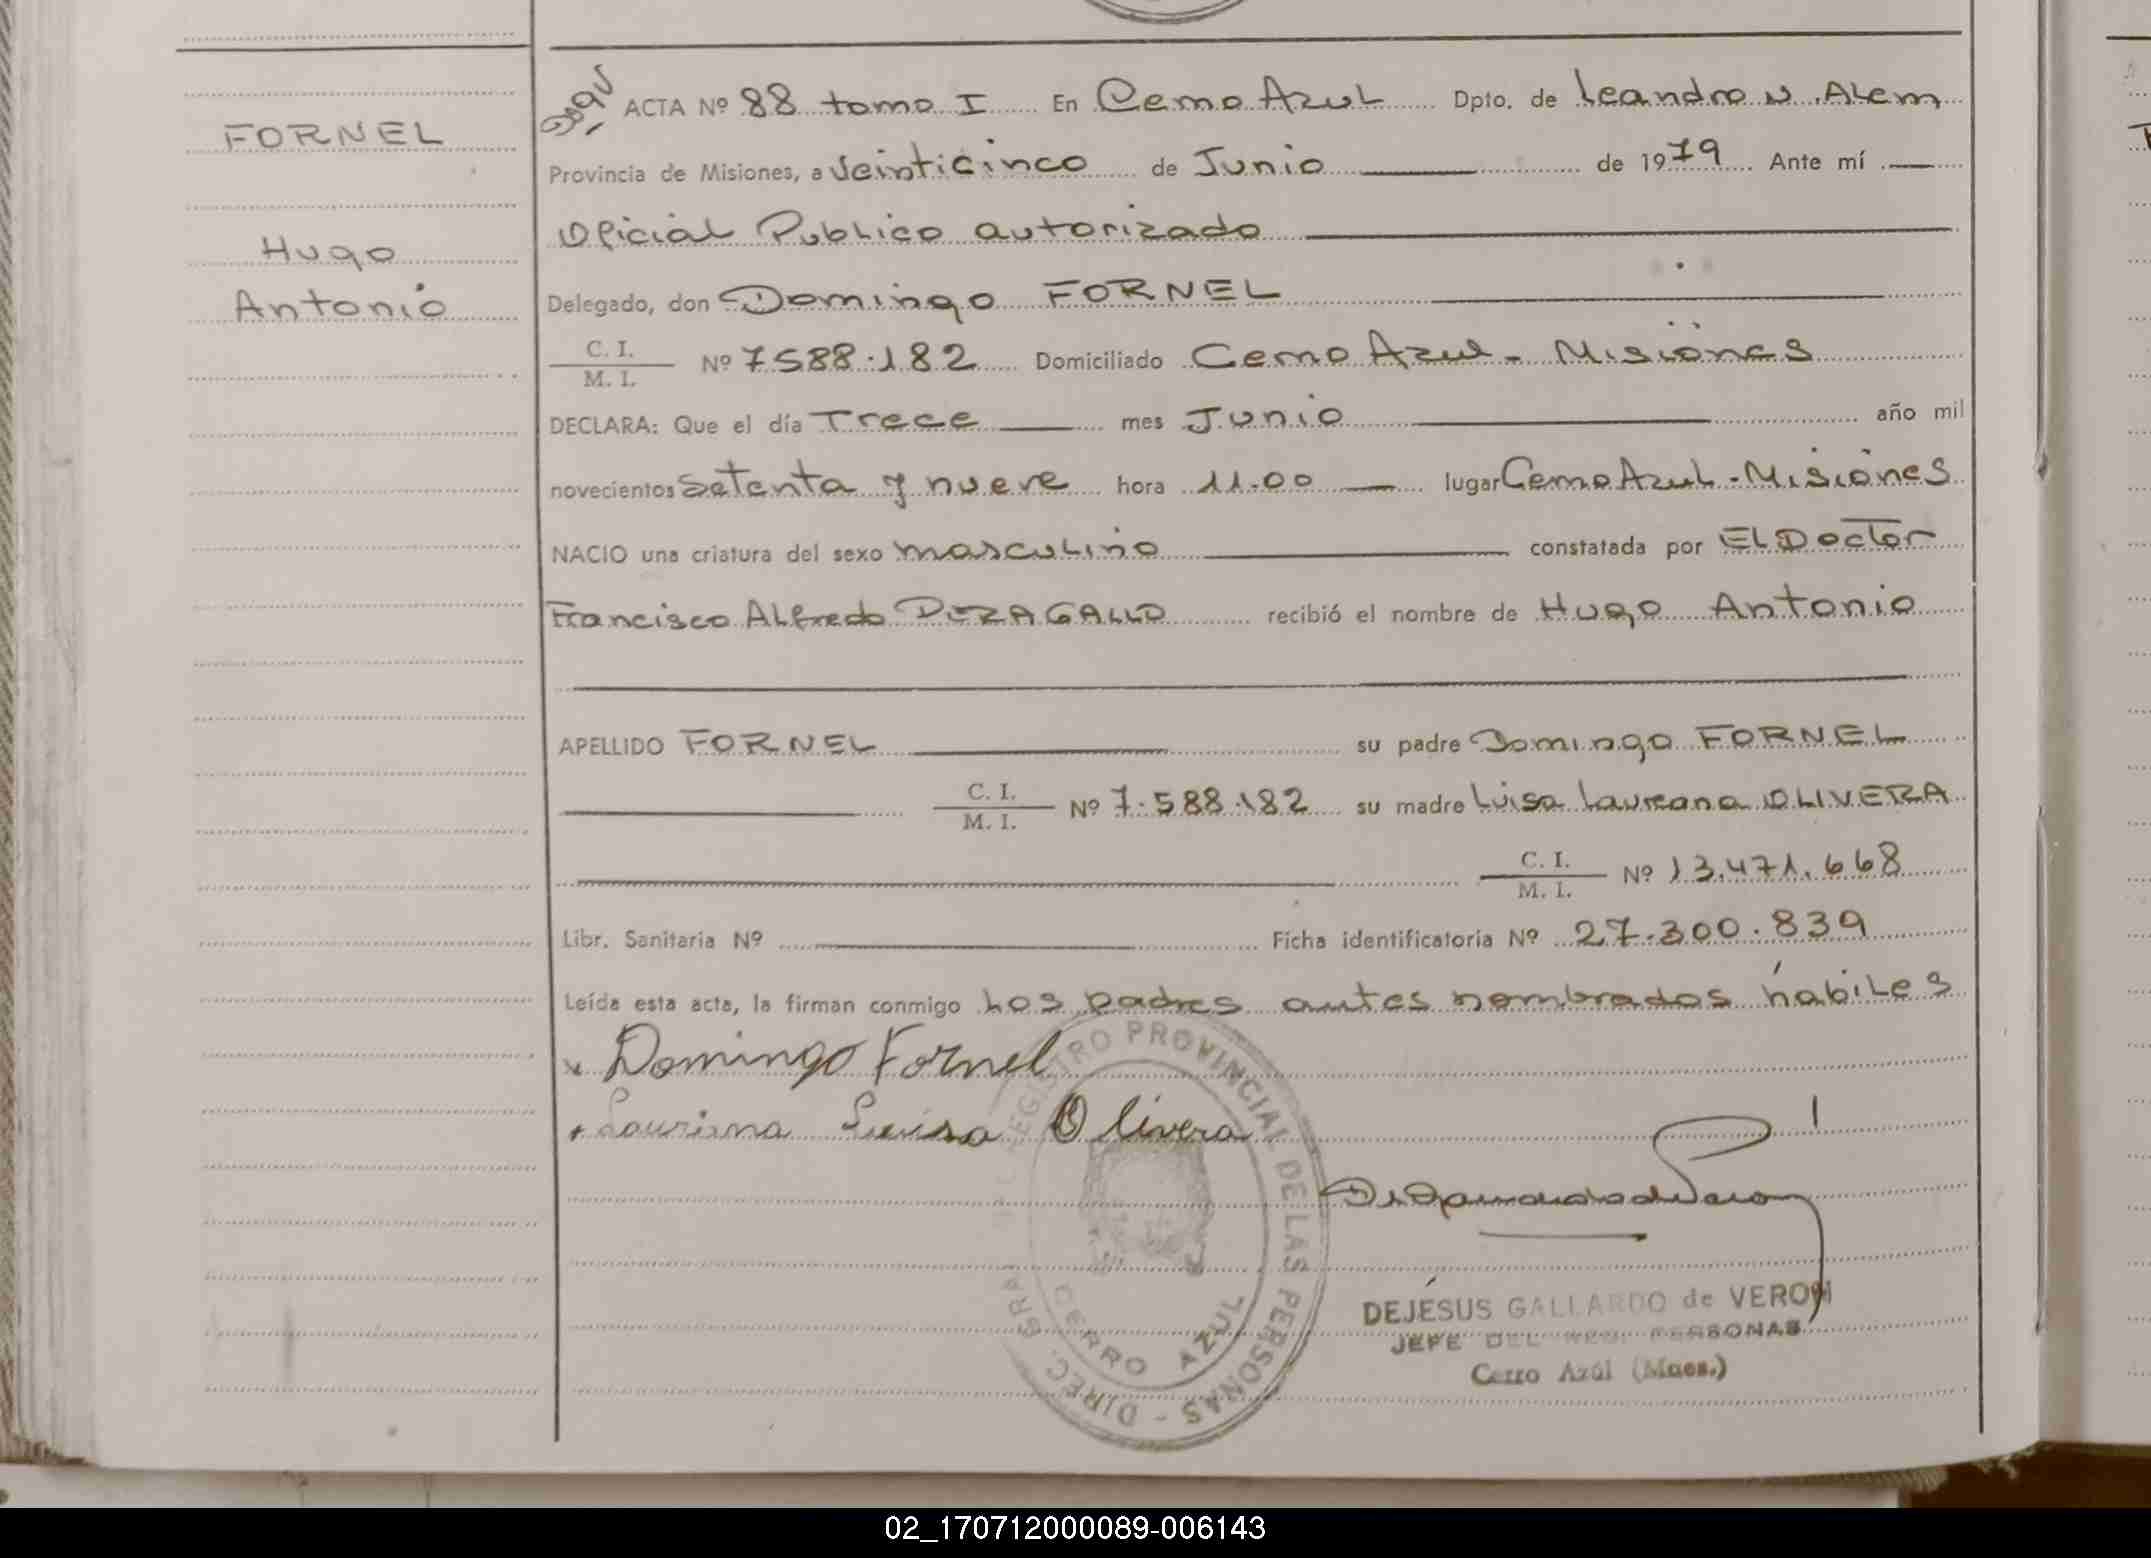 FORNEL
Hugo
Antonio
ACTA Nº 88 tomo I En Cerro Azul Dpto. de Leandro N. Alem
Provincia de Misiones, a veinticinco de Junio de 1979 Ante mí
Oficial Publico autorizado
Delegado, don Domingo FORNEL
C. I.
M. I. Nº 7588.182 Domiciliado Cerro Azul - Misiones
DECLARA: Que el día Trece mes Junio año mil
novecientos setenta y nueve hora 11.00 lugar Cerro Azul - Misiones
NACIO una criatura del sexo masculino constatada por El Doctor
Francisco Alfredo PERAGALLO recibió el nombre de Hugo Antonio
APELLIDO FORNEL su padre Domingo FORNEL
C. I.
M. I. Nº 7.588.182 su madre Luisa Laureana OLIVERA
C. I.
M. I. Nº 13.471.668
Libr. Sanitaria Nº Ficha identificatoria Nº 27.300.839
Leída esta acta, la firman conmigo Los padres antes nombrados hábiles
x Domingo Fornel
Lauriana Luisa Olivera
REGISTRO PROVINCIAL DE LAS PERSONAS - DIREC. GRAL
CERRO AZUL
DEJESUS GALLARDO de VERON
JEFE DEL REG. PERSONAS
Cerro Azúl (Mnes.)
02_170712000089-006143